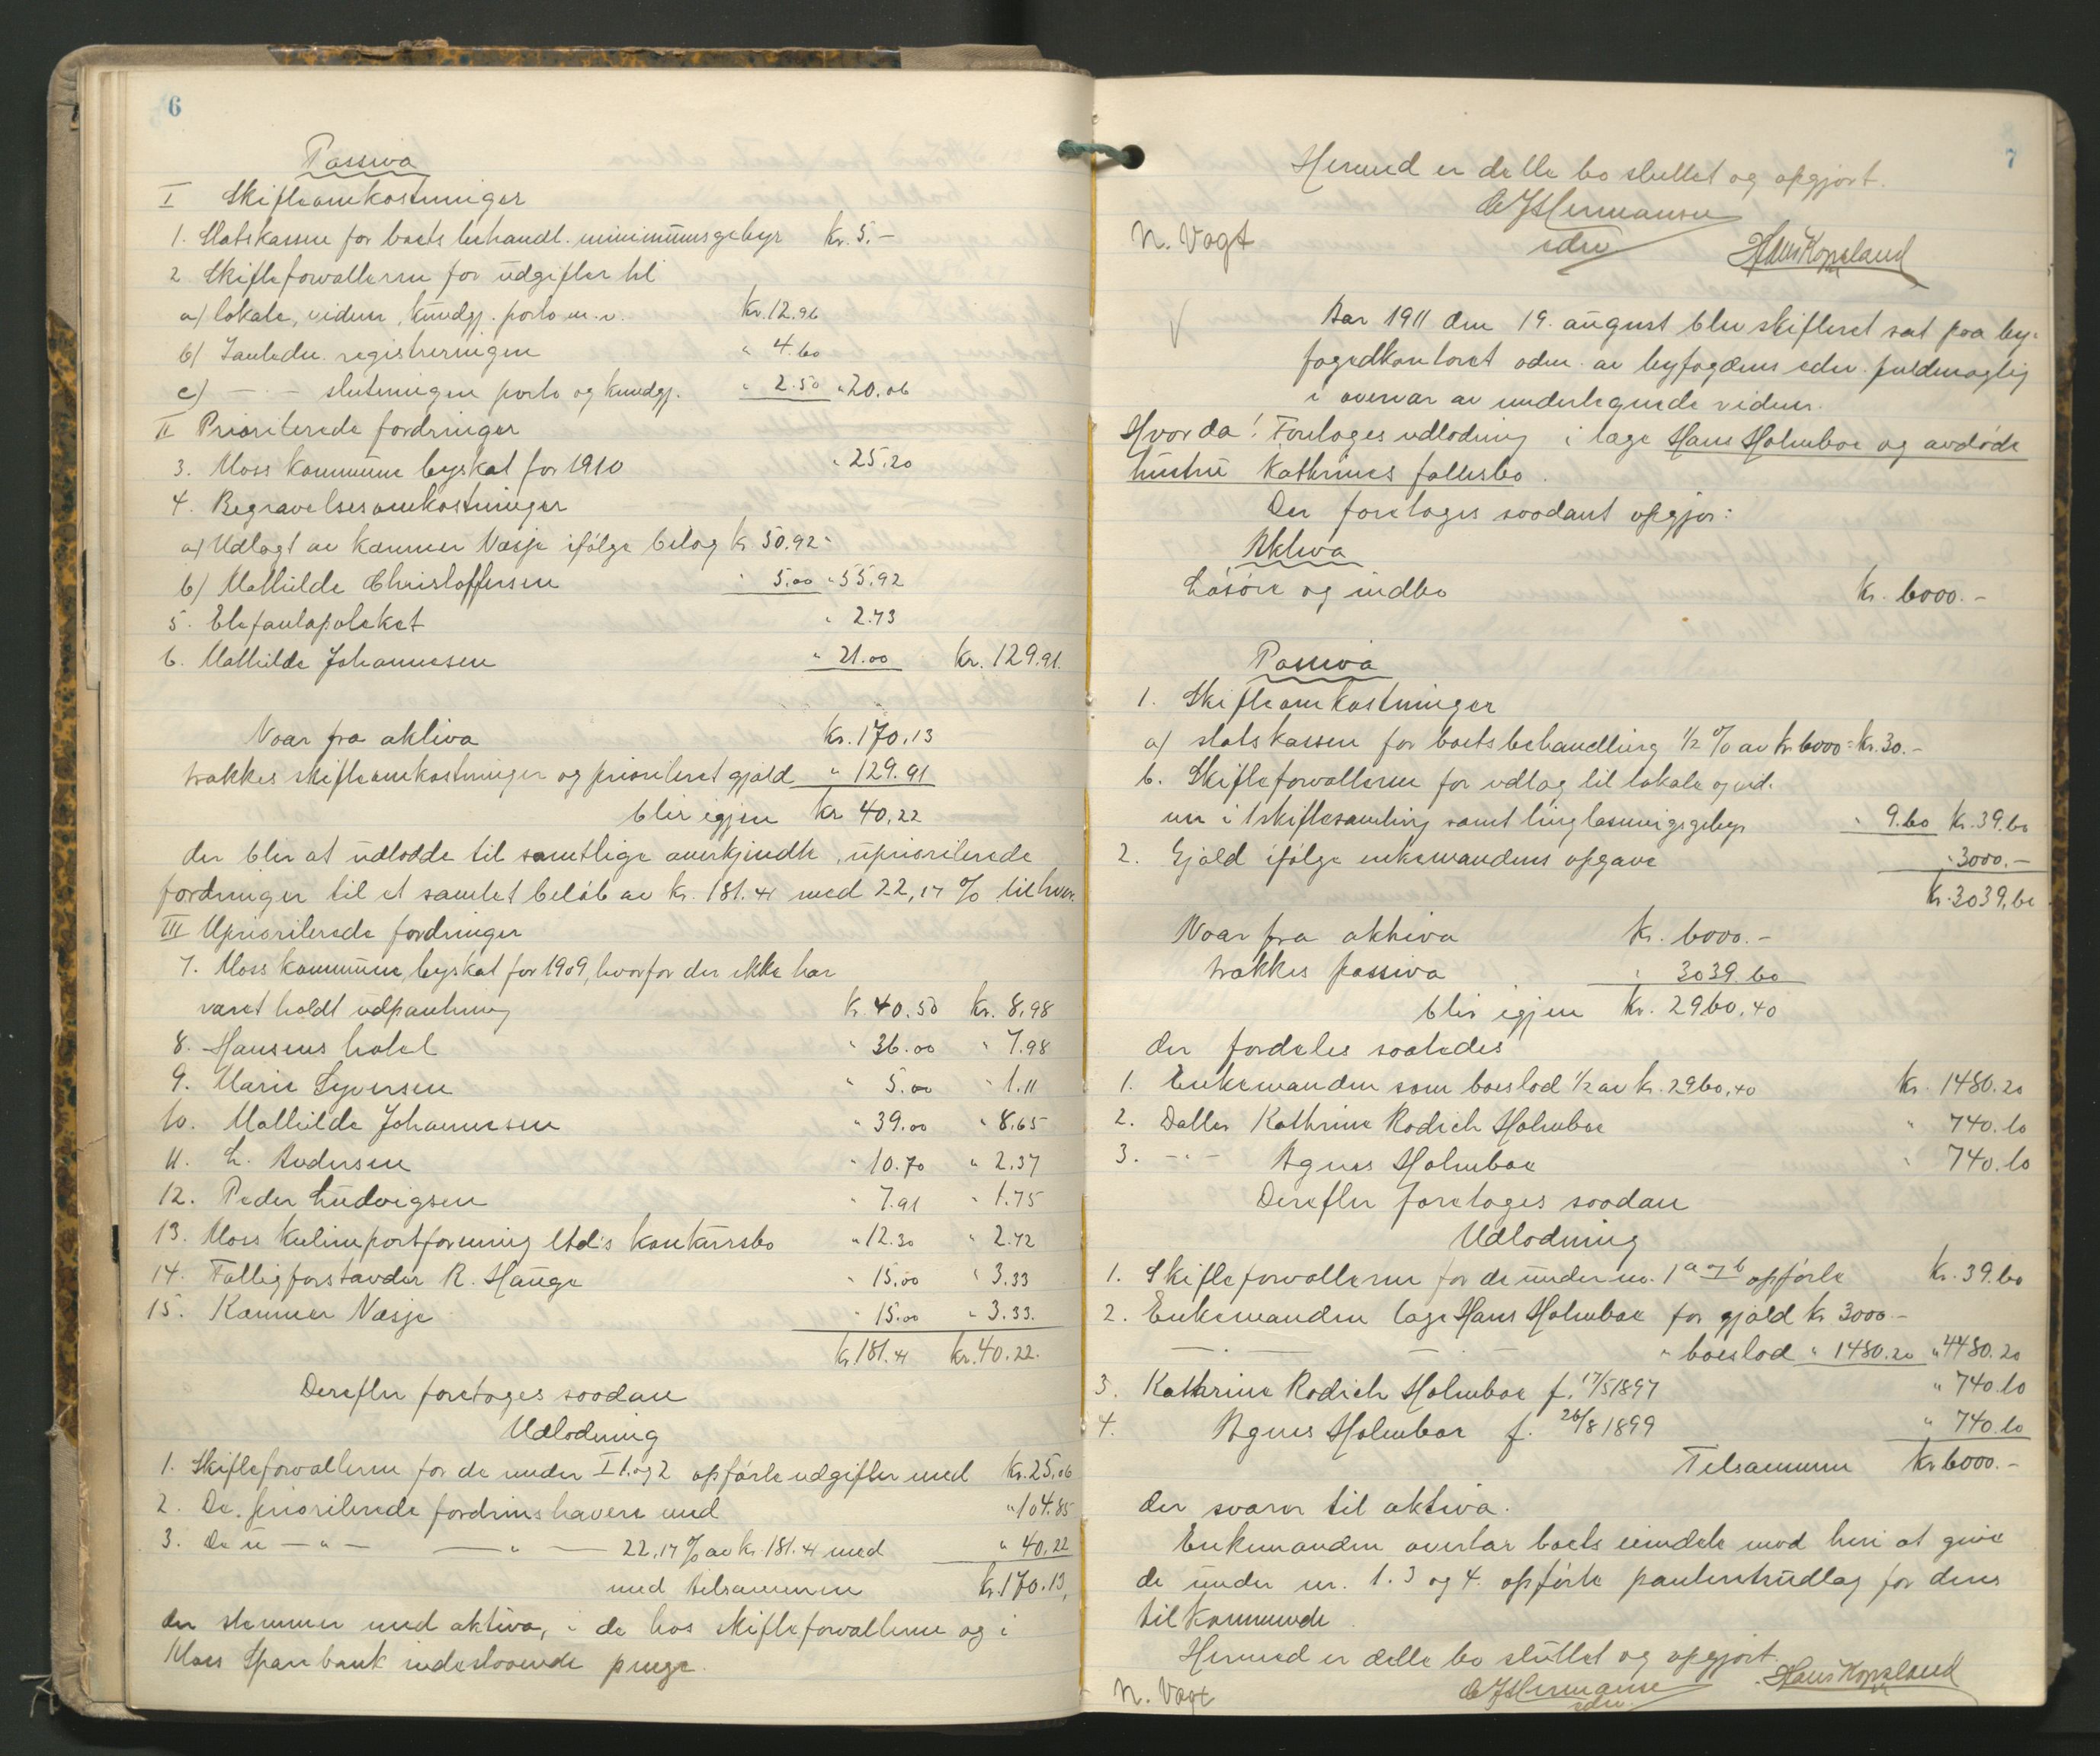 6
Passiva
I Skifteomkostninger
1. Statskassen for boets behandl. minimumsgebyr Kr. 5.-
2 Skifteforvalteren for udgifter til
a) lokale, vidner, kundgj. porto m.v. Kr. 12.96
b) I anledn. registreringen " 4.60
c) - " - slutningen porto og kundgj. " 2.50 " 20.06
II Prioriterede fordringer
3. Moss kommune byskat for 1910 " 25.20
4. Begravelsesomkostninger
a) Udlagt av kæmner Næsje ifølge bilag kr 50.92
b) Mathilde Christoffersen " 5.00 " 55.92
5. Elefantapoteket " 2.73
6. Mathilde Johannesen " 21.00 Kr. 129.91.
Naar fra aktiva Kr. 170.13
trækkes skifteomkostninger og prioriteret gjæld " 129.91
blir igjen Kr 40.22
der blir at udlodde til samtlige anerkjendte, uprioriterede
fordringer til et samlet beløb av kr. 181.41 med 22,17 % til hver.
III Uprioriterede fordringer
7. Moss kommune, byskat for 1909, hvorfor der ikke har
været holdt udpantning Kr. 40.50 Kr. 8.98
8. Hansens hotel " 36.00 " 7.98
9. Marie Syversen " 5.00 " 1.11
10. Mathilde Johannesen " 39.00 " 8.65
11. L. Andersen " 10.70 " 2.37
12. Peder Ludvigsen " 7.91 " 1.75
13. Moss Kulimportforening Ltd's konkursbo " 12.30 " 2.72
14. Fattigforstander R. Hauge " 15.00 " 3.33
15. Kæmner Næsje " 15.00 " 3.33.
Kr. 181.41 Kr. 40.22.
Derefter foretages saadan
Udlodning
1. Skifteforvalteren for de under I 1. og 2 opførte udgifter med Kr. 25.06
2. De prioriterede fordringshavere med " 104.85
3. De u - " - - " - 22,17 % av kr. 181.41 med " 40.22
med tilsammen Kr. 170.13,
der stemmer med aktiva, i de hos skifteforvalteren og i
Moss Sparebank indestaaende penge.
7
Hermed er dette bo sluttet og opgjort.
C J Hermansen
edsv
N. Vogt Hans Kopseland
Aar 1911 den 19. august blev skifteret sat paa by-
fogedkontoret adm. av byfogdens edsv. fuldmægtig
i overvær av undertegnede vidner.
Hvorda: Foretoges udlodning i læge Hans Holmboe og avdøde
hustru Kathrines fællesbo.
Der foretages saadant opgjør:
Aktiva
Løsøre og indbo Kr. 6000.-
Passiva
1. Skifteomkostninger
a) statskassen for boets behandling 1/2 % av kr. 6000 = Kr. 30.-
b. Skifteforvalteren for udlæg til lokale og vid-
ner i 1 skiftesamling samt tinglæsningsgebyr " 9.60 Kr. 39.60
2. Gjæld ifølge enkemandens opgave " 3000.-
Kr. 3039.60
Naar fra aktiva Kr. 6000.-
trækkes passiva " 3039.60
blir igjen Kr. 2960.40
der fordeles saaledes
1. Enkemanden som boeslod 1/2 av kr. 2960,40 Kr. 1480.20
2. Datter Kathrine Rodich Holmboe " 740.10
3. - " - Agnes Holmboe " 740.10
Derefter foretages saadan
Udlodning
1. Skifteforvalteren for de under no. 1 a og b opførte Kr. 39.60
2. Enkemanden læge Hans Holmboe for gjæld kr 3000.-
- " - " boeslod " 1480.20 " 4480.20
3. Kathrine Rodich Holmboe f. 17/5 1897 " 740.10
4. Agnes Holmboe f. 26/8 1899 " 740.10
Tilsammen Kr 6000.-
der svarer til aktiva.
Enkemanden overtar boets eiendele mod heri at give
de under nr. 1. 3 og 4. opførte panteretudlæg for deres
tilkommende
Hermed er dette bo sluttet og opgjort.
N. Vogt C J Hermansen Hans Kopseland
edsv.